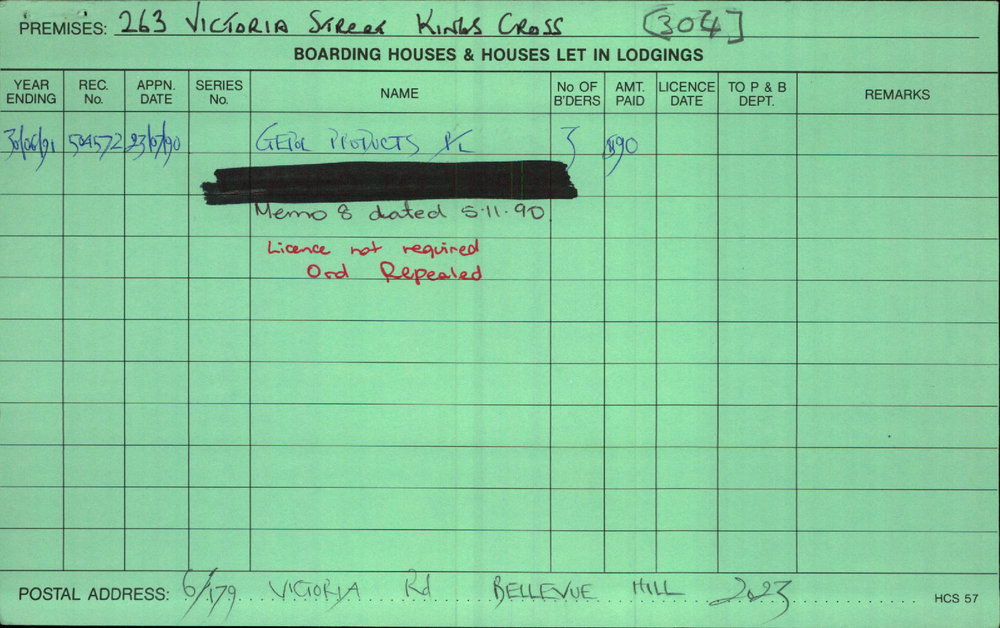 PREMISES: 263 VICTORIA STREET KINGS CROSS [304]
BOARDING HOUSES & HOUSES LET IN LODGINGS
YEAR ENDING REC. No. APPN. DATE SERIES No. NAME No OF B'DERS AMT. PAID LICENCE DATE TO P & B DEPT. REMARKS
30/06/91 504572 23/07/90 PRODUCTS P/L 3 $90
Memo 8 dated 5.11.90
Licence not required
Ord Repealed
POSTAL ADDRESS: 6/179 VICTORIA Rd BELLEVUE HILL 2023
HCS 57